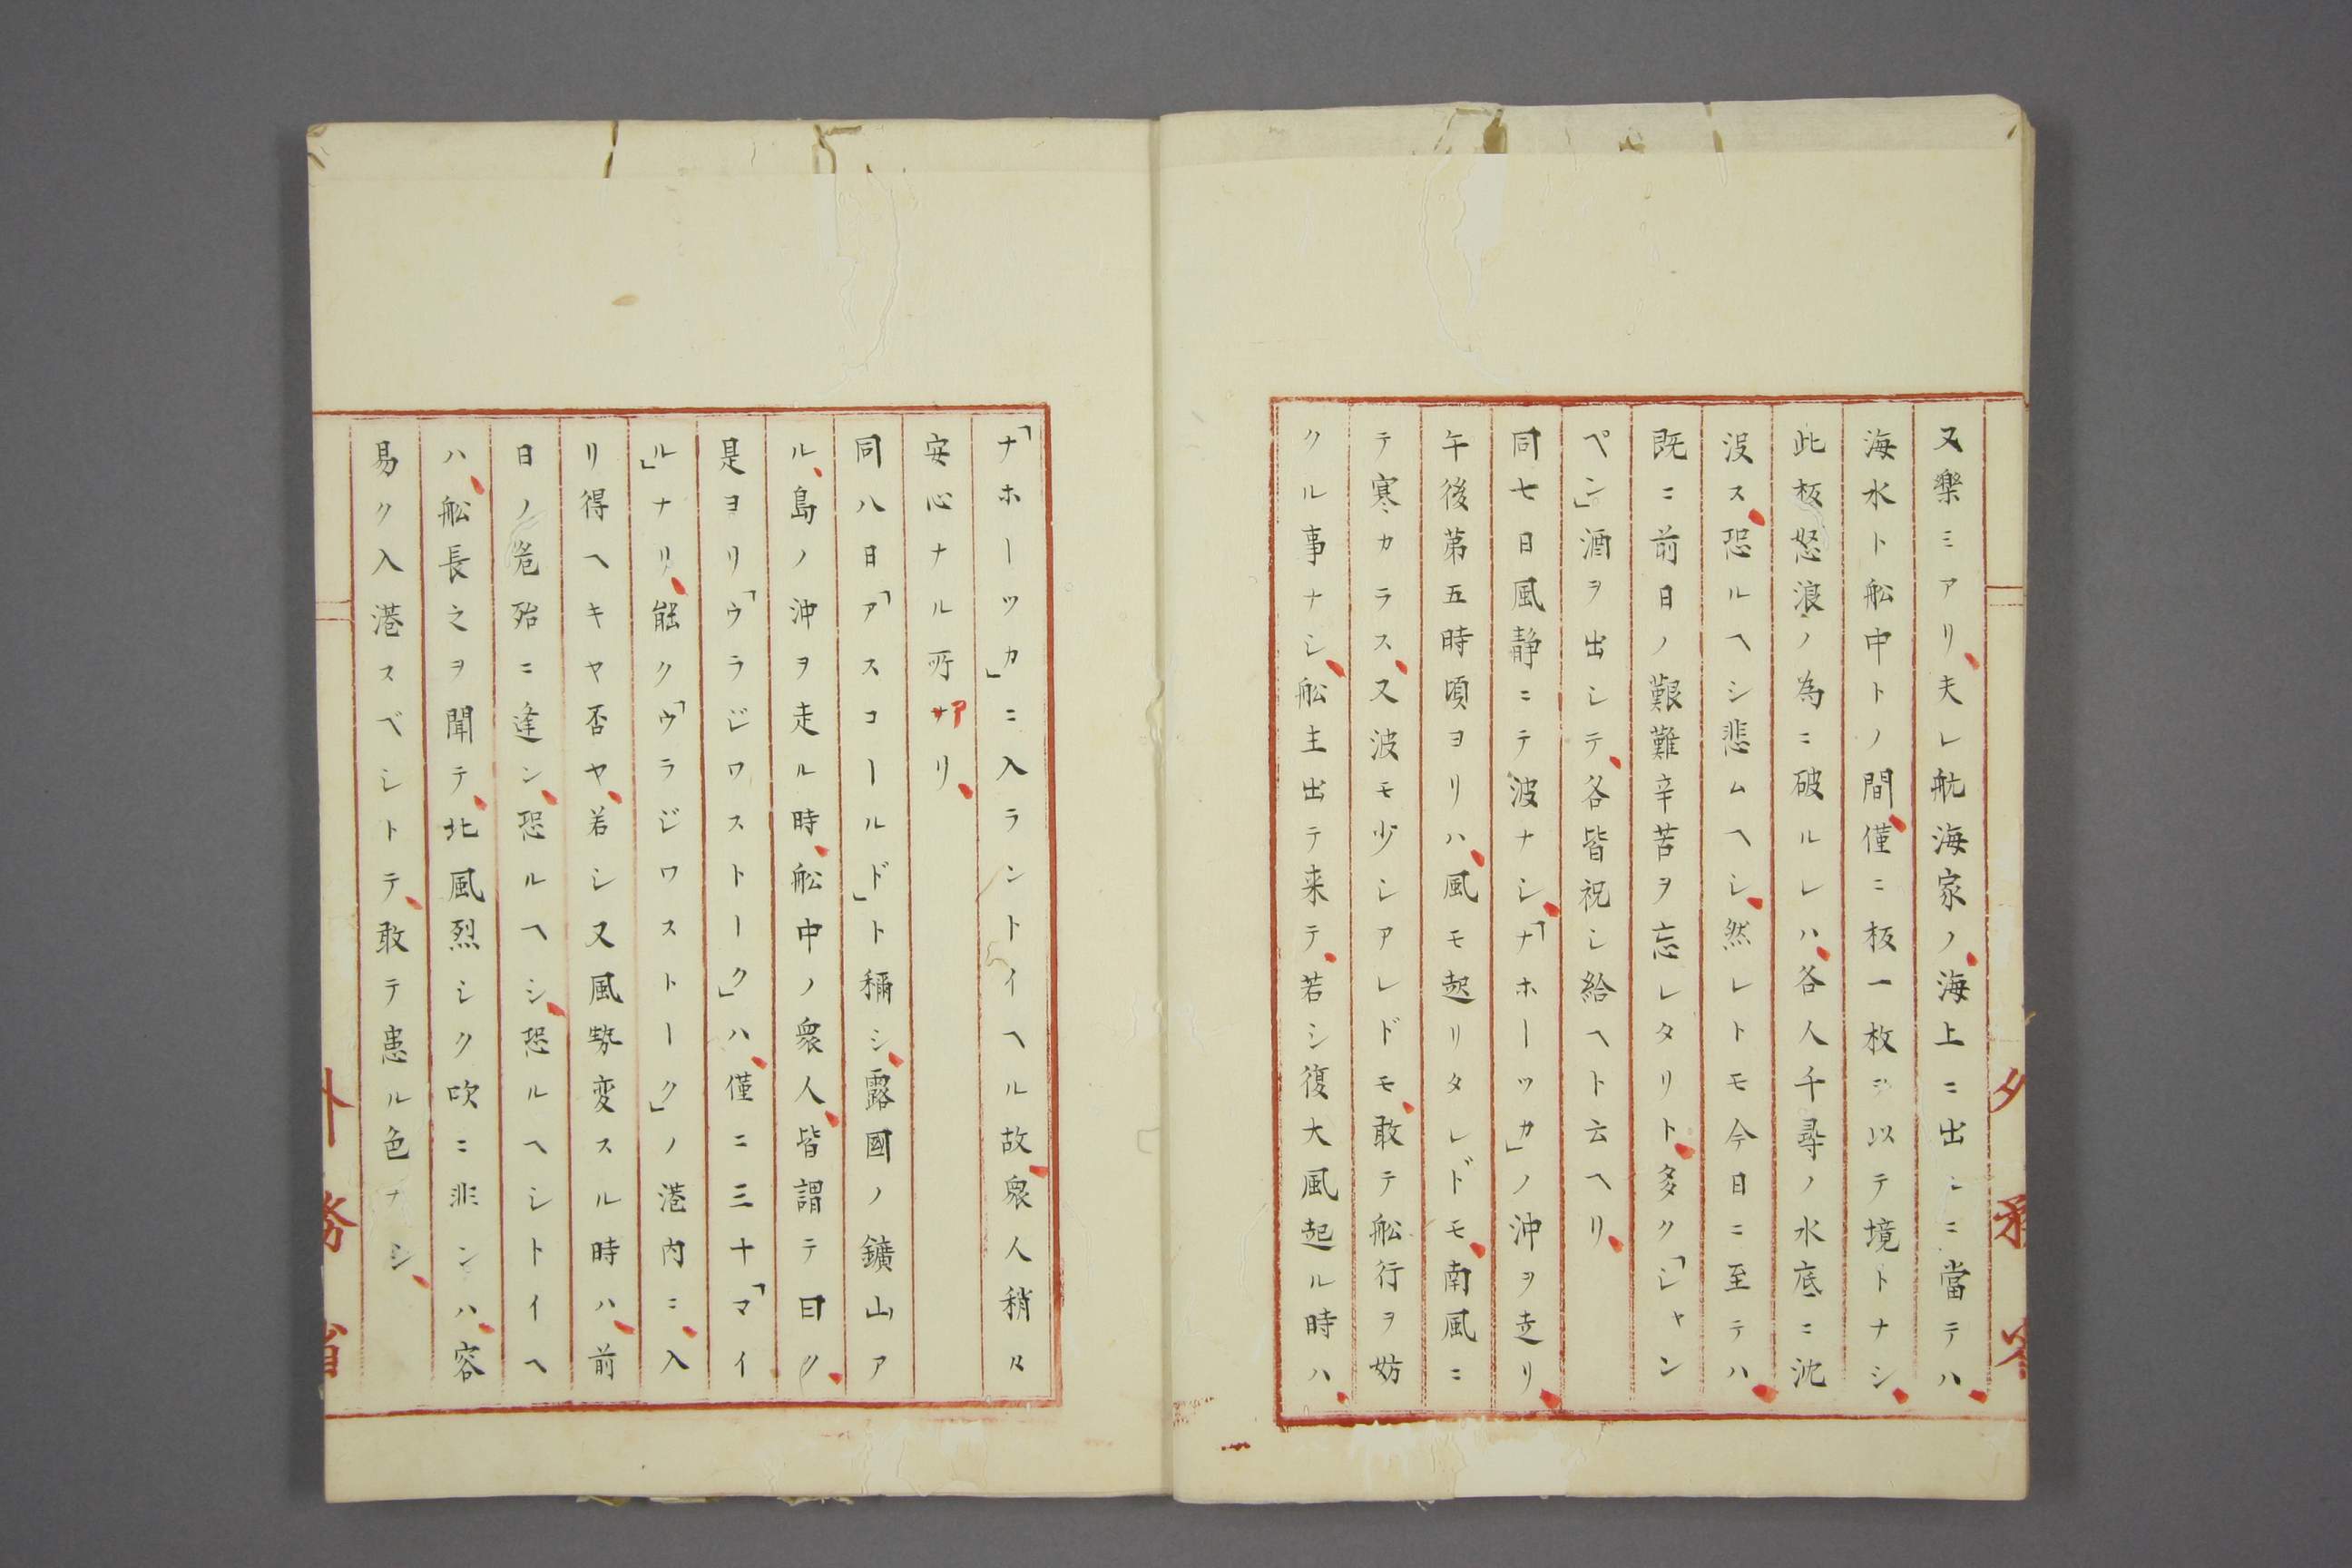 又樂ミアリ、夫レ航海家ノ、海上ニ出シニ當テハ、
海水ト舩中トノ間、僅ニ板一枚ヲ以テ境トナシ、
此板怒浪ノ為ニ破ルレハ、各人千尋ノ水底ニ沈
没ス、恐ルヘシ悲ムヘシ、然レトモ今日ニ至テハ、
既ニ前日ノ艱難辛苦ヲ忘レタリト、多ク「シャン
ペン」酒ヲ出シテ、各皆祝シ給ヘト云ヘリ、
同七日風静ニテ波ナシ、「ナホーツカ」ノ沖ヲ走リ、
午後第五時頃ヨリハ、風モ起リタレドモ、南風ニ
テ寒カラス、又波モ少シアレドモ、敢テ舩行ヲ妨
クル事ナシ、舩主出テ来テ、若シ復大風起ル時ハ、
「ナホーツカ」ニ入ラントイヘル故、衆人稍々
安心ナル所アリ、
同八日「アスコールド」ト稱シ、露國ノ鑛山ア
ル、島ノ沖ヲ走ル時、舩中ノ衆人、皆謂テ曰ク、
是ヨリ「ウラジワストーク」ハ、僅ニ三十「マイ
ル」ナリ、能ク「ウラジワストーク」ノ港内ニ、入
リ得ヘキヤ否ヤ、若シ又風勢変スル時ハ、前
日ノ危殆ニ逢ン、恐ルヘシ、恐ルヘシトイヘ
ハ、舩長之ヲ聞テ、北風烈シク吹ニ非ンハ、容
易ク入港スベシトテ、敢テ患ル色ナシ、
外務省